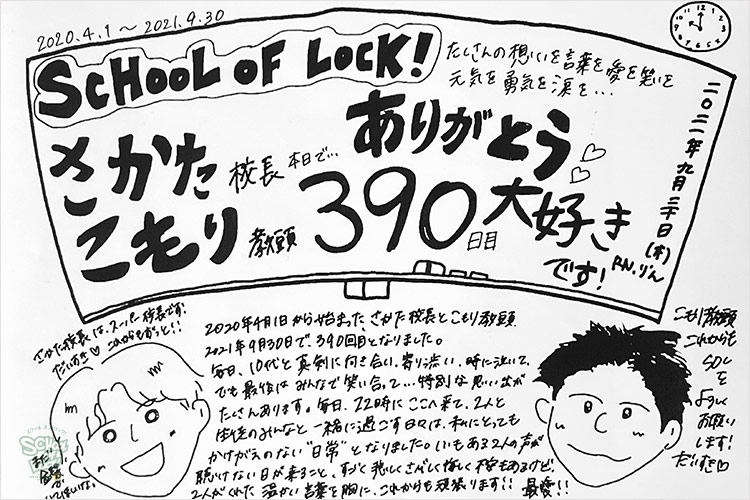 2020.4.1 ～ 2021.9.30
SCHOOL OF LOCK!
たくさんの想いを言葉を愛を笑いを
元気を勇気を涙を…
さかた校長 本日で… ありがとう
こもり教頭 390日目 大好き
です!
二〇二一年九月三十日(木)
RN.りん
さかた校長は、スーパー校長です!
だいすき♡これからもずっと!!
2020年4月1日から始まった、さかた校長とこもり教頭
2021年9月30日で、390回目となりました。
毎日、10代と真剣に向き合い、寄り添い、時に泣いて、
でも最後はみんなで笑い合って…特別な思い出が
たくさんあります。毎日、22時にここへ来て、2人と
生徒のみんなと一緒に過ごす日々は、私にとって
かけがえのない"日常"となりました。いつもある2人の声が
聴けない日が来ること、すごく悲しくさみしく悔しく
2人がくれた温かい言葉を胸に、これからも頑張ります!!
こもり教頭
これからも
SOLを
よろしく
お願い
します!
だいすき♡